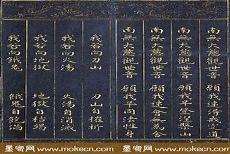 南無大悲觀世音 願我速得戒定道
南無大悲觀世音 願我早登涅槃山
南無大悲觀世音 願我速會無為舍
南無大悲觀世音 願我早同法性身
我若向刀山 刀山自摧折
我若向火湯 火湯自消滅
我若向地獄 地獄自枯竭
我若向餓鬼 餓鬼自飽滿
墨客网 www.mokecn.com 墨客网 www.mokecn.com